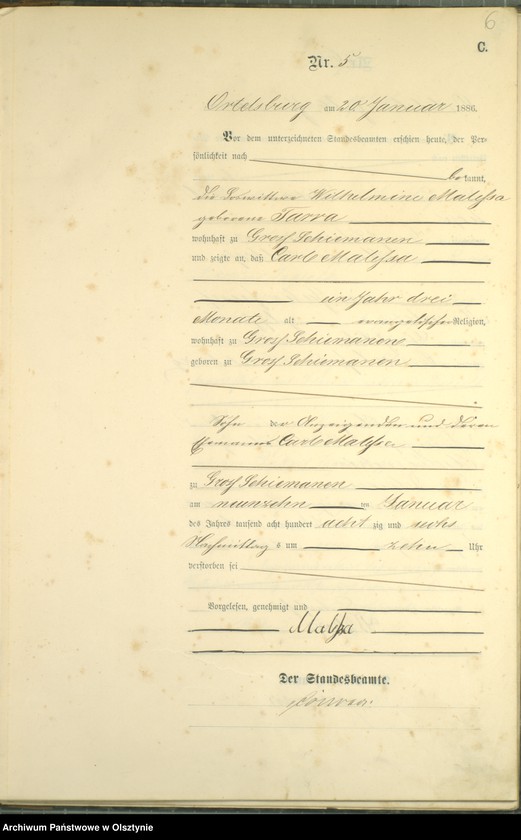 6
C.
Nr. 5
Ortelsburg am 20 Januar 1886.
Vor dem unterzeichneten Standesbeamten erschien heute, der Per-
sönlichkeit nach
be kannt,
die Wilhelmine Malyssa
geborene Tarra
wohnhaft zu Gross Schiemanen
und zeigte an, daß Carl Malyssa
ein Jahr drei
Monate alt evangelischer Religion,
wohnhaft zu Gross Schiemanen
geboren zu Gross Schiemanen
Sohn der Anzeigenden und deren
Ehemannes Carl Malyssa
zu Gross Schiemanen
am neunzehn ten Januar
des Jahres tausend acht hundert acht zig und sechs
Nachmittag s um zehn Uhr
verstorben sei
Vorgelesen, genehmigt und
Malyssa
Der Standesbeamte.
Archiwum Państwowe w Olsztynie